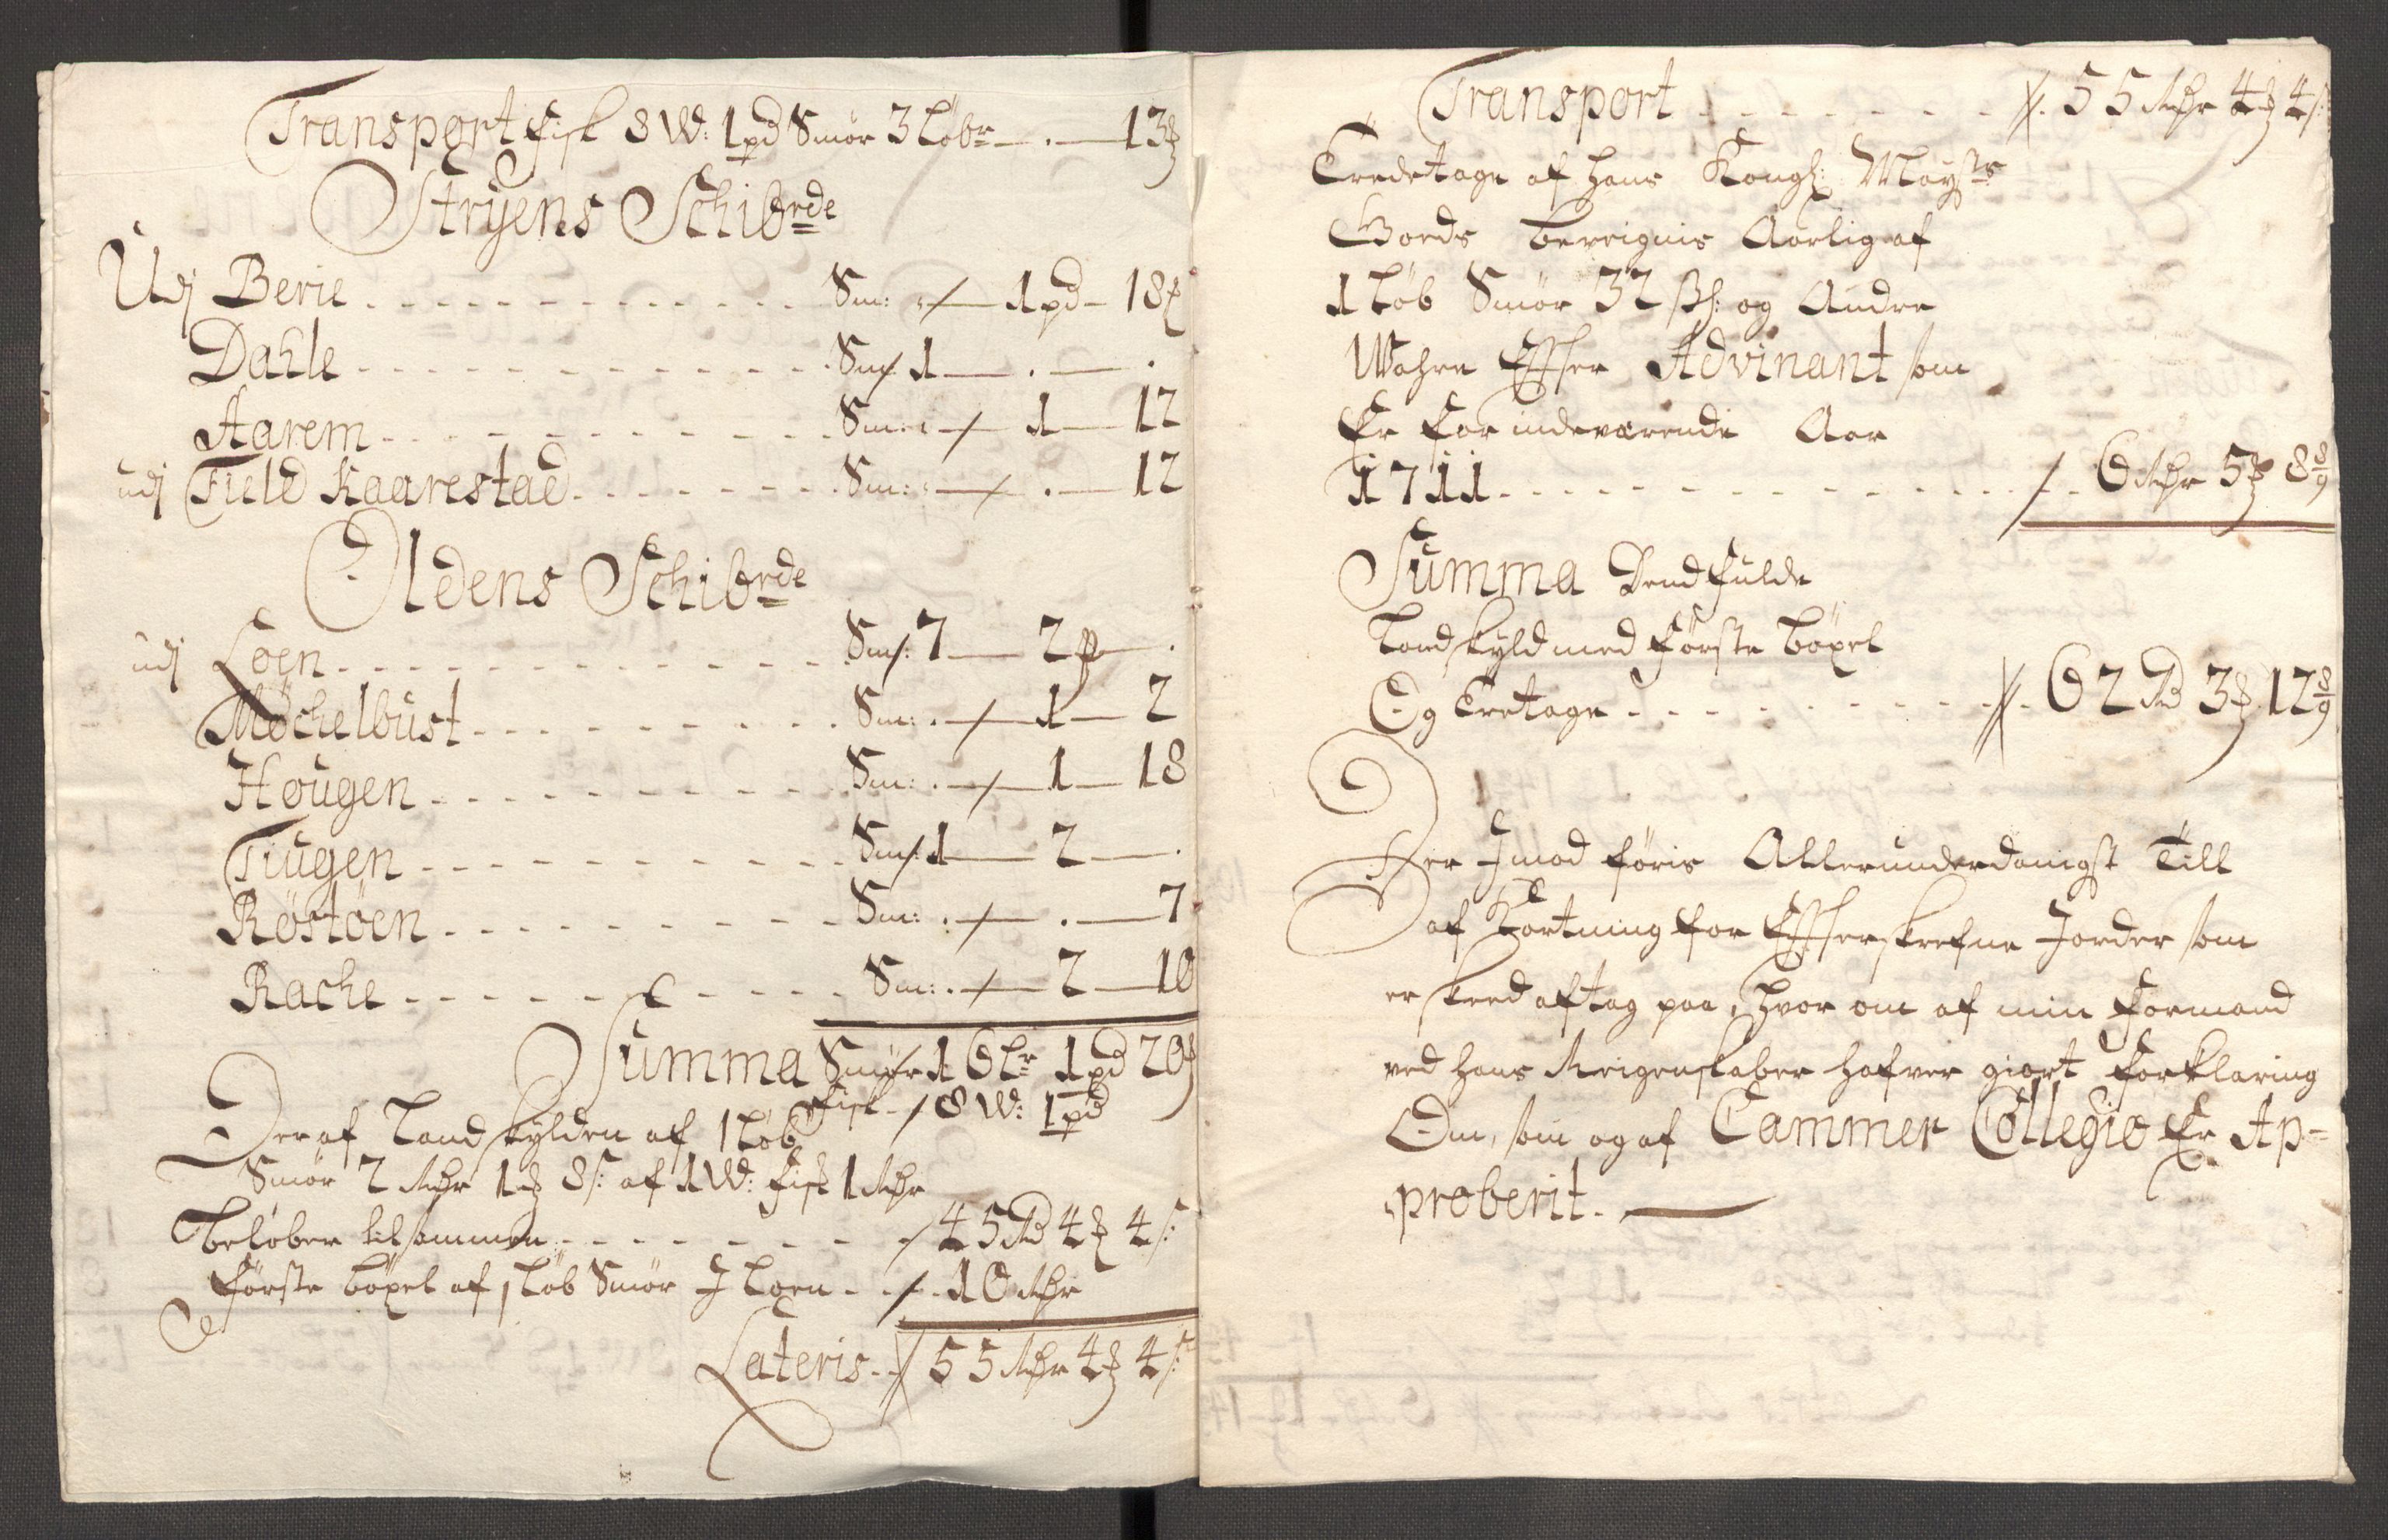 Transport fisk 8 W: 1 pd Smör 3 Löbr — . — 13 ℔
Stryens Schibrde
Udj Berie . . . Sm: / — 1 pd — 18 ℔
Dahle . . . Sm / 1 — . — .
Aarem . . . Sm: / — 1 — 12
udj Field Kaarestad . . . Sm: — / . — 12
Oldens Schibrde
udj Loen . . . Sm: 7 — 2 pd — .
Møchelbust . . . Sm: . / — 1 — 2
Hougen . . . Sm: . / — 1 — 18
Tiugen . . . Sm / 1 — 2 — .
Röstöen . . . Sm: . / — . — 7
Rache . . . Sm: . / — 2 — 10
Summa Smör 16 Lr 1 pd 20 ℔
fisk / 8 W: 1 pd
Deraf Landskylden af 1 Löb
Smör 2 Rdr 1 ℔ 8 s: af 1 W: fisk 1 Rdr
beløber tilsammen . . . / 45 Rd 4 ℔ 4 s:
Förste böxel af 1 Löb Smör J Loen . . / . 10 Rdr
Lateris . . / 55 Rdr 4 ℔ 4 s:
Transport . . . / . 55 Rdr 4 ℔ 4 s:
Tredetage af hans Kongl: Mayts
Gords bereignis Aarlig af
1 Löb Smör 32 sh: og Andre
Wahre Efter Advinant som
Er for indeværende Aar
1711 . . . / 6 Rdr 5 ℔ 8 8/9
Summa Dend fulde
Landskyld med Förste böxel
Og Tretage . . . / . 62 Rd 3 ℔ 12 8/9
Her Jmod föris Allerunderdanigst Till
af Kortning for Efterskrefne Jorder som
er skeed aftag paa, hvor om af min Formand
ved hans Reigenskaber hafver giort Forklaring
Om, som og af Cammer Collegio Er Ap-
proberit. —